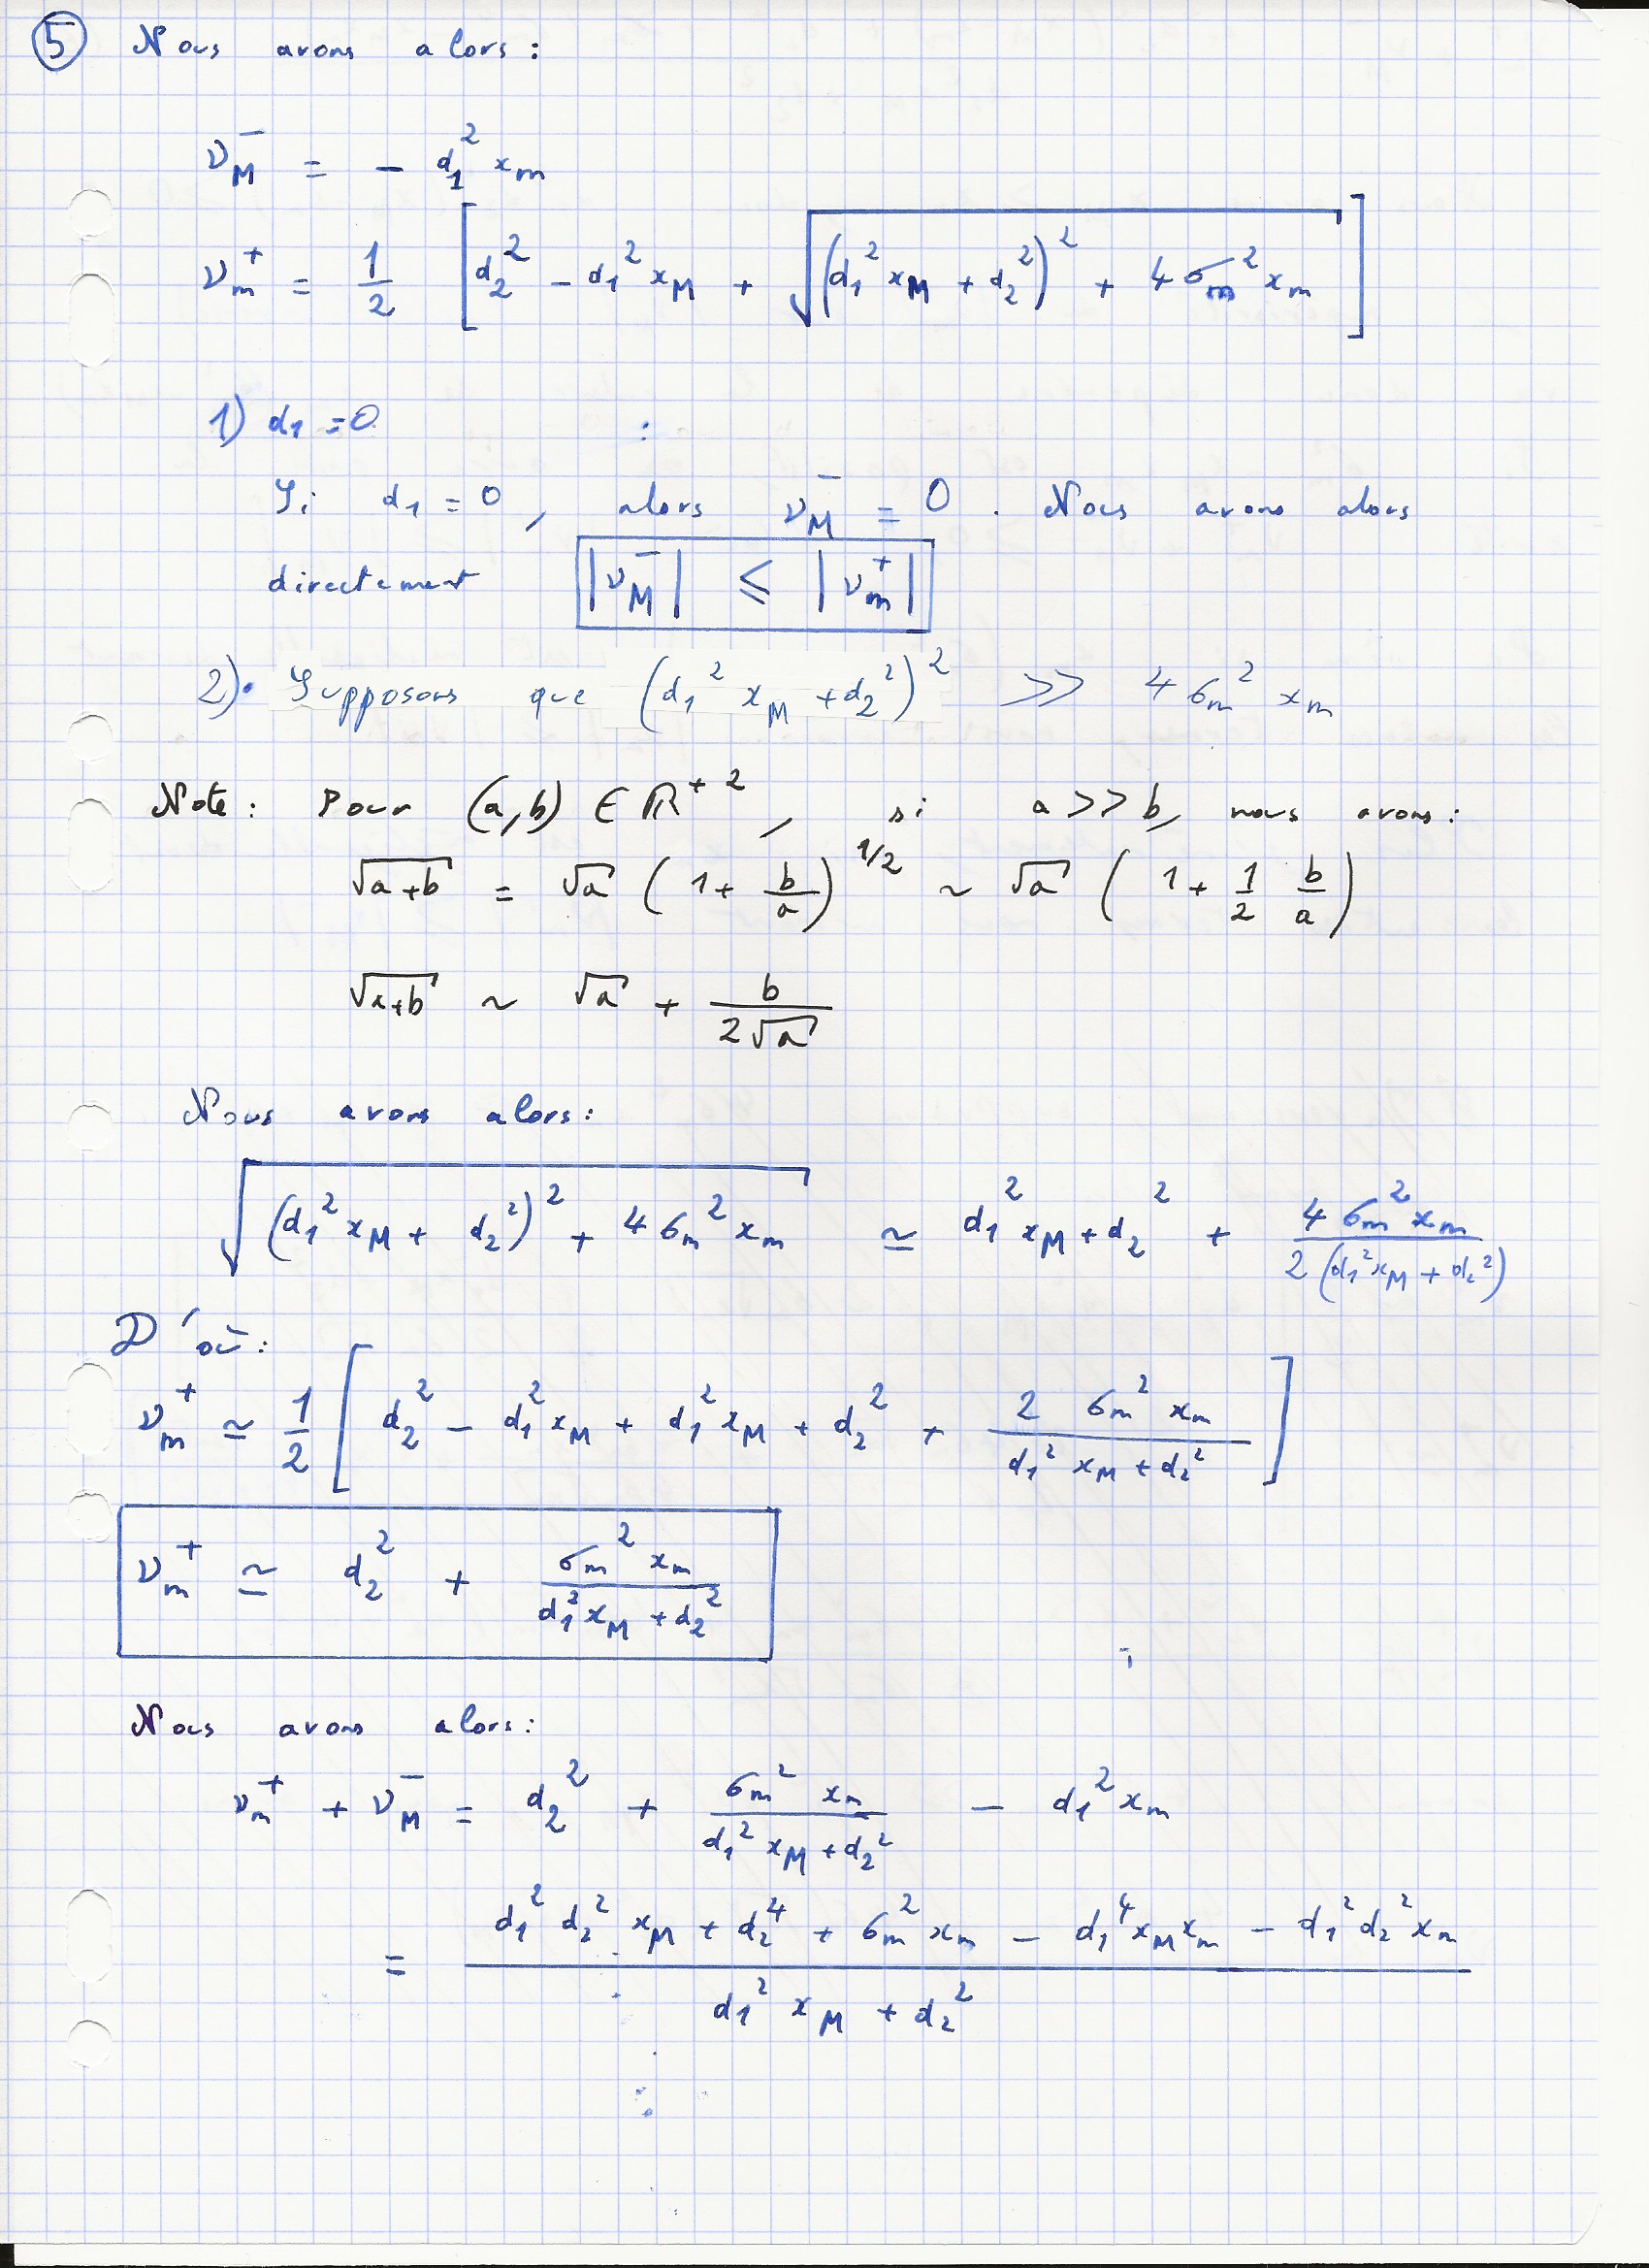 ⑤ Nous avons alors :
ν_M^- = - d_1^2 x_m
ν_m^+ = 1/2 [ d_2^2 - d_1^2 x_M + √( (d_1^2 x_M + d_2^2)^2 + 4 σ_m^2 x_m ) ]
1) d_1 = 0 :
Si d_1 = 0, alors ν_M^- = 0. Nous avons alors
directement |ν_M^-| ⩽ |ν_m^+|
2) • Supposons que (d_1^2 x_M + d_2^2)^2 >> 4 σ_m^2 x_m
Note : Pour (a,b) ∈ ℝ^{+ 2}, si a >> b, nous avons :
√(a+b) = √a (1 + b/a)^{1/2} ~ √a (1 + 1/2 b/a)
√(a+b) ~ √a + b/(2√a)
Nous avons alors :
√( (d_1^2 x_M + d_2^2)^2 + 4 σ_m^2 x_m ) ≃ d_1^2 x_M + d_2^2 + 4 σ_m^2 x_m / (2 (d_1^2 x_M + d_2^2))
D'où :
ν_m^+ ≃ 1/2 [ d_2^2 - d_1^2 x_M + d_1^2 x_M + d_2^2 + 2 σ_m^2 x_m / (d_1^2 x_M + d_2^2) ]
ν_m^+ ≃ d_2^2 + σ_m^2 x_m / (d_1^2 x_M + d_2^2)
Nous avons alors :
ν_m^+ + ν_M^- = d_2^2 + σ_m^2 x_m / (d_1^2 x_M + d_2^2) - d_1^2 x_m
= (d_1^2 d_2^2 x_M + d_2^4 + σ_m^2 x_m - d_1^4 x_M x_m - d_1^2 d_2^2 x_m) / (d_1^2 x_M + d_2^2)